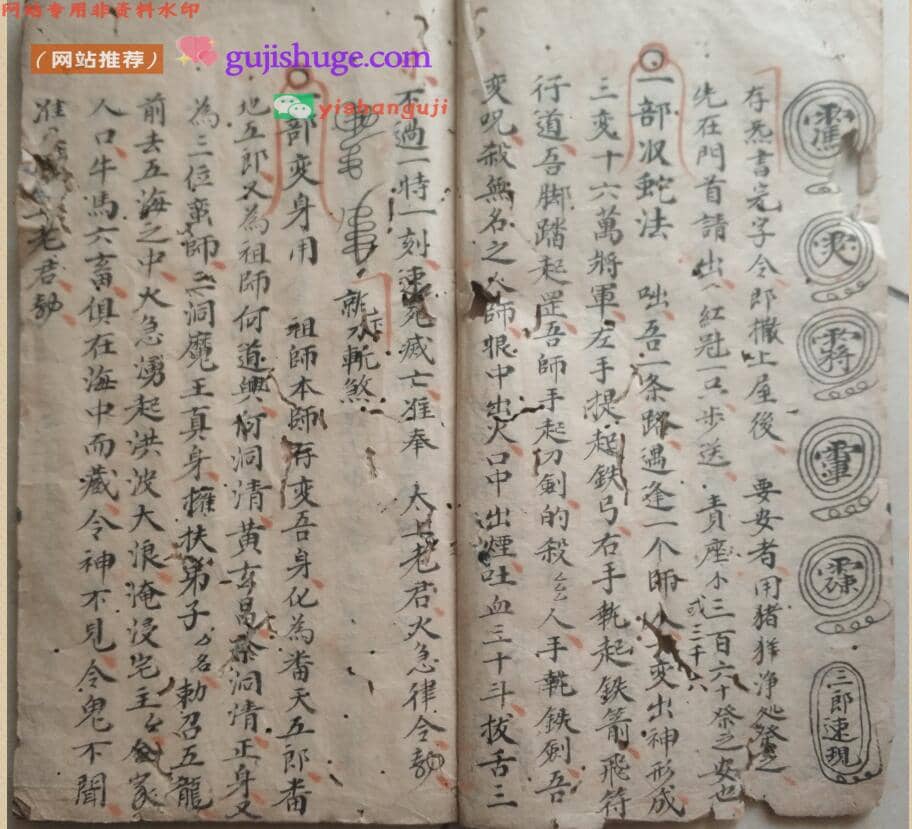 网站专用非资料水印
（网站推荐）
gujishuge.com
yishanguji
三郎速現
存炁書完字令即撒上屋後 要安者用猪羊净処
先在門首請出紅冠一只步送 責座小三百六十祭之安也
或三千六
一部収蛇法 咄吾一条路遇逢一个師人変出神形成
三变十六萬將軍左手提起鉄弓右手執起鉄箭飛符
行道吾脚踏起罡吾師手起刀劍的殺人手執鉄劍吾
变咒殺無名之師眼中出火口中出煙吐血三十斗拔舌三
不過一時一刻速死滅亡准奉 太上老君火急律令勅
斬煞
一部変身用 祖師本師存变吾身化為畨天五郎畨
地五郎又為祖師何道興何洞清黄玄昌洞清正身又
為三位蛮師三洞魔王真身擁扶弟子厶名勅召五龍
前去五海之中火急湧起洪波大浪淹浸宅主合家
人口牛馬六畜俱在海中而藏令神不見令鬼不聞
准老君勅